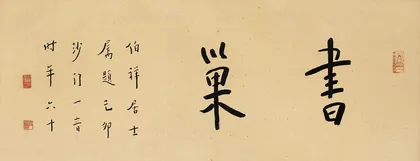 書巢
伯祥居士
屬題己卯
沙門一音
時年六十